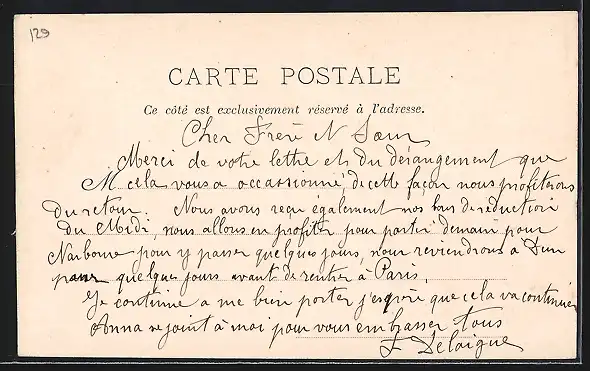 129
CARTE POSTALE
Ce côté est exclusivement réservé à l'adresse.
Cher Frere et Sœur
Merci de votre lettre et du dérangement que
cela vous a occassionné, de cette façon nous profiterons
du retour. Nous avons reçu également nos bons de réduction
du Midi, nous allons en profiter pour partir demain pour
Narbonne pour y passer quelques jours, nous reviendrons à
passer quelques jours avant de rentrer à Paris,
Je continue a me bien porter j'espère que cela va continuer
Anna se joint à moi pour vous embrasser tous
Delaigue